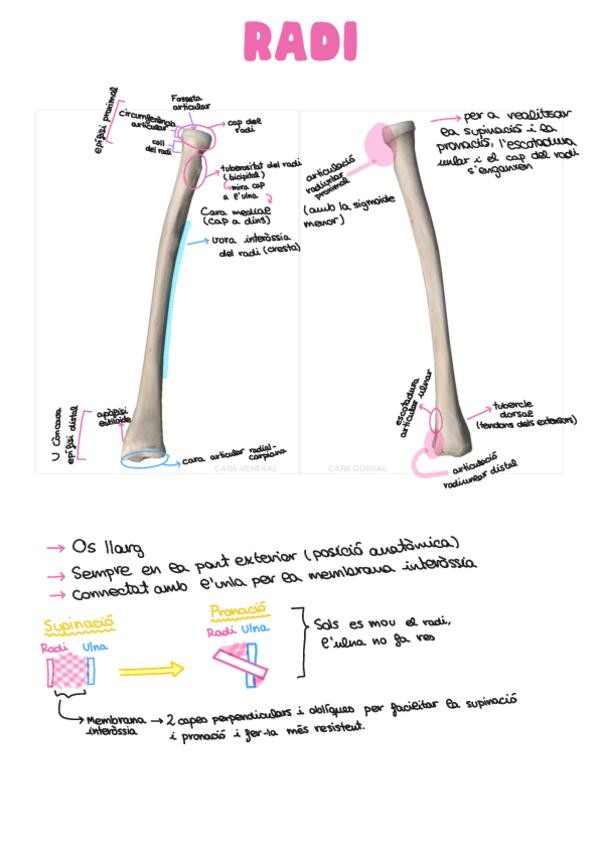 RADI
epífisi proximal
Fosseta
articular
circumferència
articular
coll
del radi
cap del
radi
tuberositat del radi
(bicipital)
mira cap
a l'ulna
Cara medial
(cap a dins)
vora interòssia
del radi (cresta)
U Còncava
epífisi distal
apòfisi
estiloide
cara articular radial-
carpiana
CARA VENTRAL
articulació
radioulnar
proximal
(amb la sigmoide
menor)
per a realitzar
la supinació i la
pronació, l'escotadura
ulnar i el cap del radi
s'enganxen
escotadura
articular ulnar
tubercle
dorsal
(tendons dels extensors)
articulació
radioulnar distal
CARA DORSAL
→ Os llarg
→ Sempre en la part exterior (posició anatòmica)
→ Connectat amb l'ulna per la membrana interòssia
Supinació
Radi Ulna
Pronació
Radi Ulna
Sols es mou el radi,
l'ulna no fa res
Membrana → 2 capes perpendiculars i obliqües per facilitar la supinació
interòssia
i pronació i fer-la més resistent.